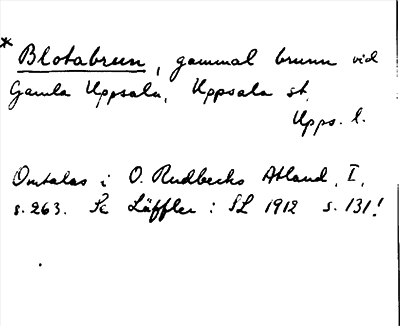 * Blotabrun, gammal brunn vid
Gamla Uppsala, Uppsala st.
Upps. l.
Omtalas i O. Rudbecks Atland, I,
s. 263. Se Läffler i SL 1912 s. 131!